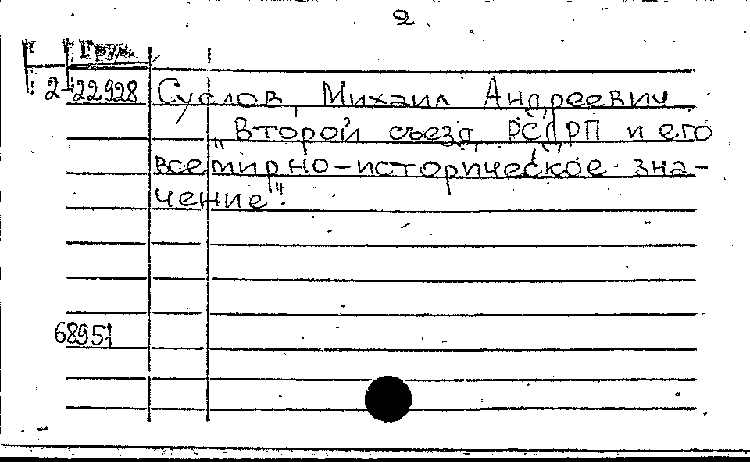 2
Груз.
2-22928 Суслов, Михаил Андреевич.
„Второй съезд РСДРП и его
всемирно-историческое зна-
чение".
68951